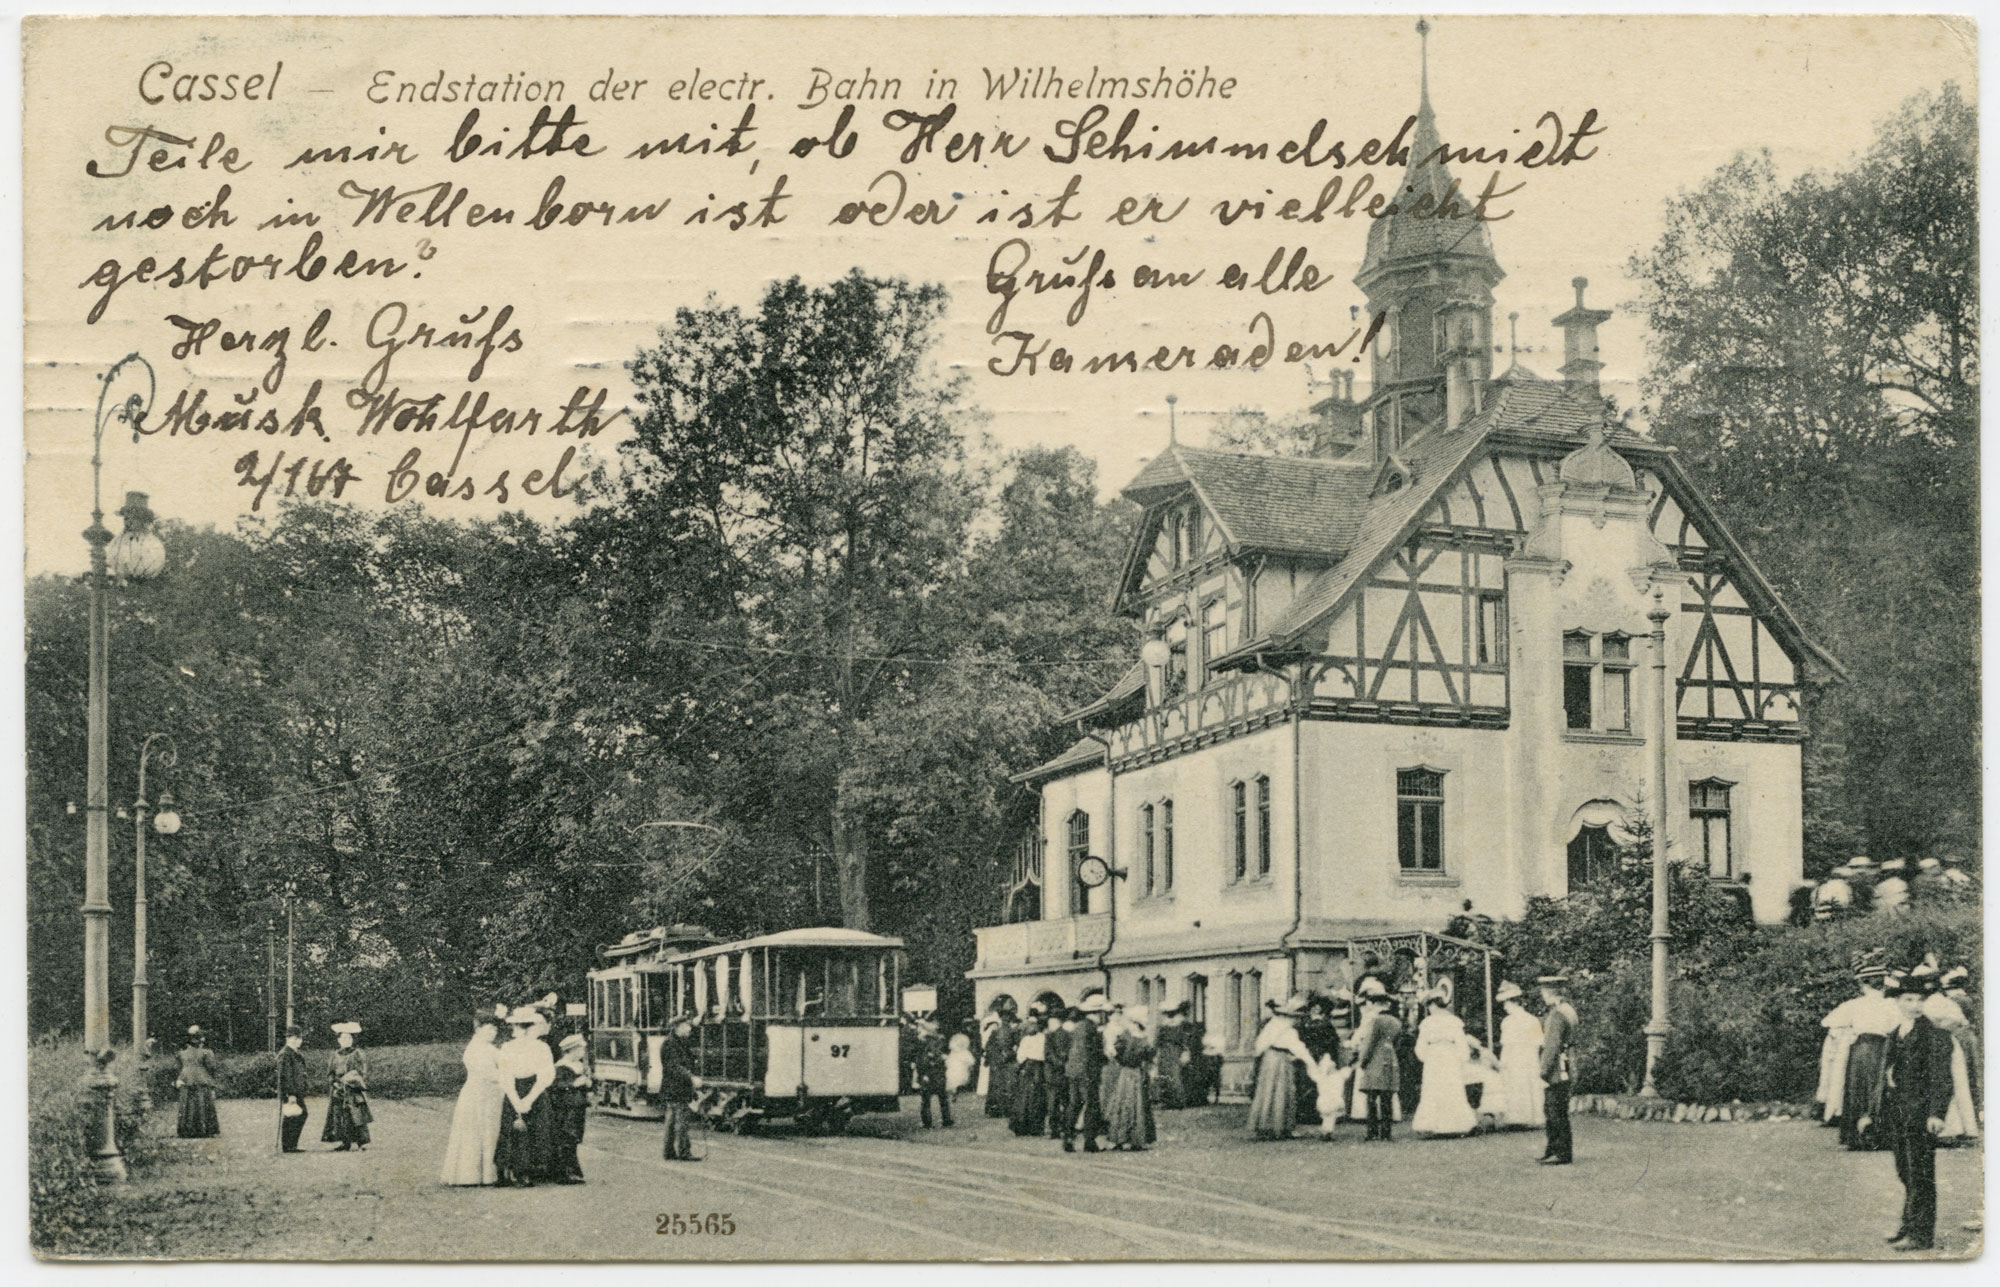 Cassel – Endstation der electr. Bahn in Wilhelmshöhe
Teile mir bitte mit, ob Herr Schimmelschmidt
noch in Wellenborn ist oder ist er vielleicht
gestorben?
Herzl. Gruß
Musk. Wohlfarth
2/167 Cassel.
Gruß an alle
Kameraden!
97
25565